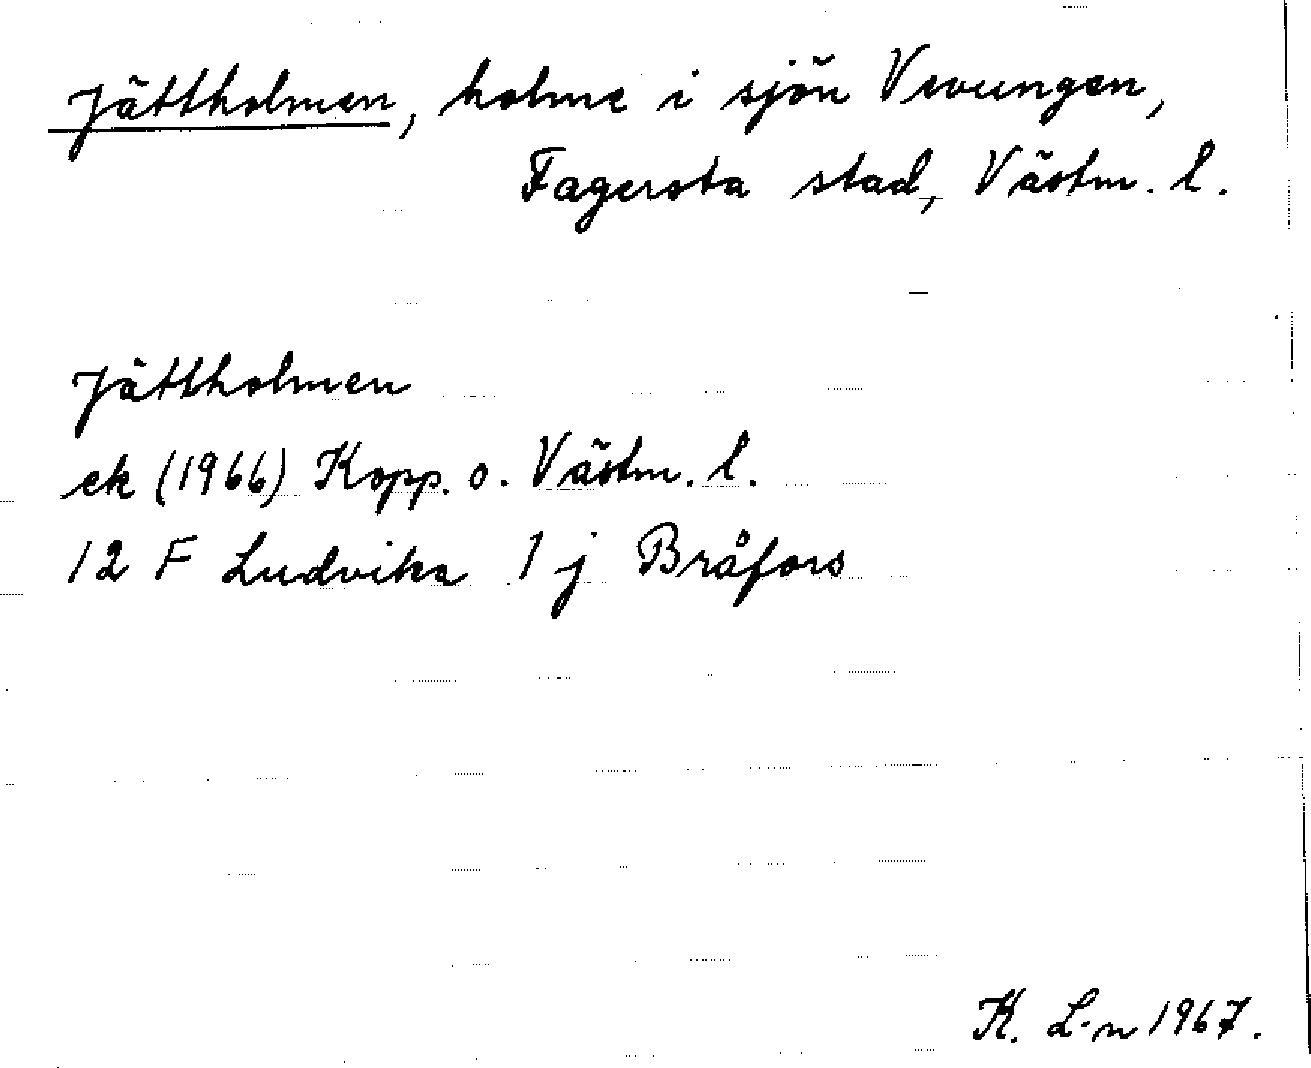 Jättholmen, holme i sjön Vevungen,
Fagersta stad, Västm. l.
Jättholmen
ek (1966) Kopp. o. Västm. l.
12 F Ludvika 1 j Bråfors
K. L-n 1967.